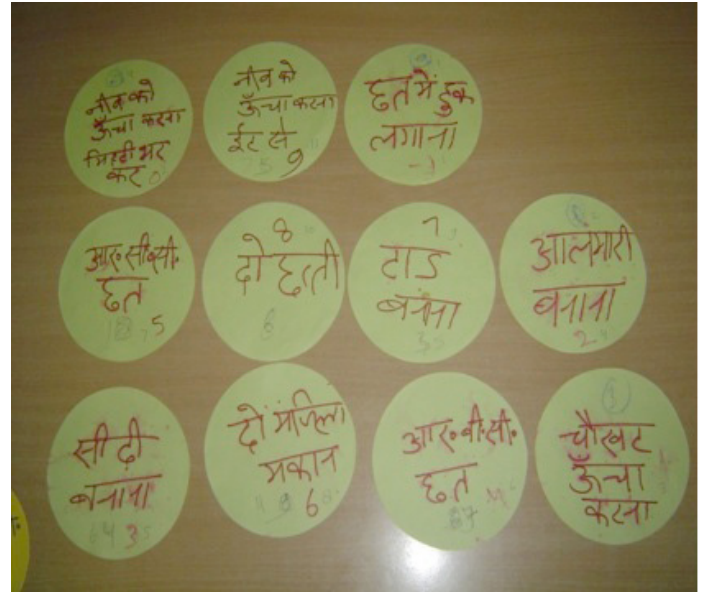 नीव को
ऊँचा करना
मिट्टी भर
कर
नीव को
ऊँचा करना
ईट से
9
छत में हुक
लगाना
आर.सी.सी.
छत
5
8
दो छत्ती
7
टाड
बनाना
आलमारी
बनाना
2
सीढ़ी
बनाना
3
दो मंजिला
मकान
6
आर.बी.सी.
छत
चौखट
ऊँचा
करना